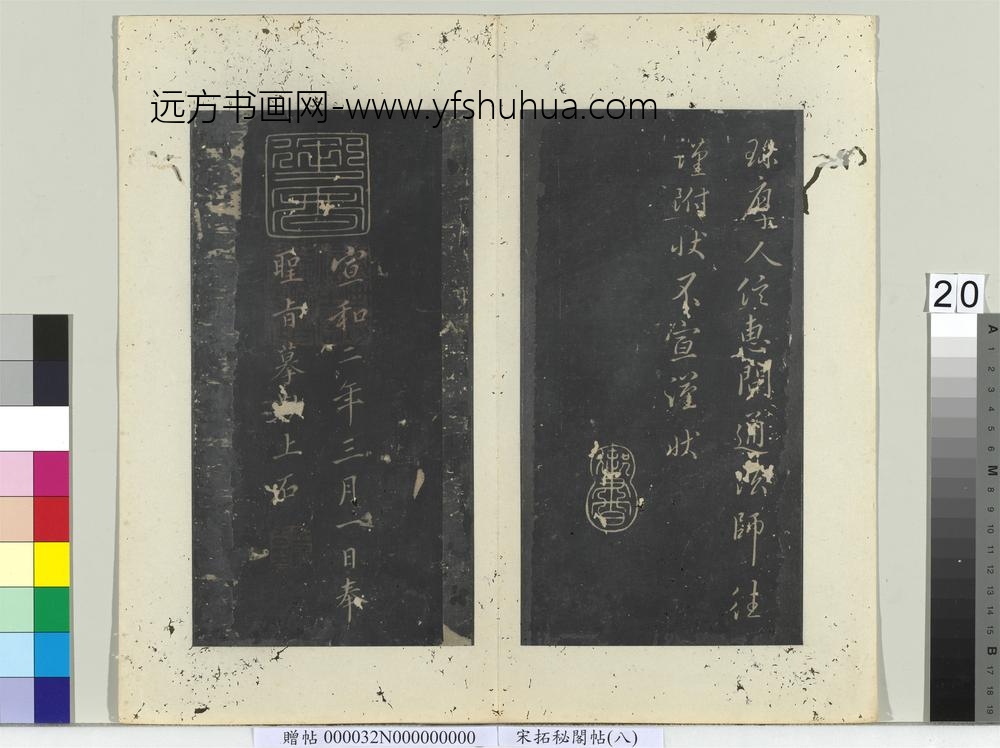 远方书画网-www.yfshuhua.com
人信惠聞通法師往
謹附狀不宣謹狀
御書
御書
宣和二年三月一日奉
聖旨摹上石
20
A
1
2
3
4
5
6
M
8
9
10
11
12
13
14
15
B
17
18
19
贈帖 000032N000000000
宋拓秘閣帖(八)